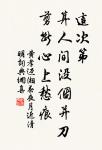 這次第
算人間沒個并刀
剪斷心上愁痕
黃孝邁湘春夜月近清
明詞典網喜